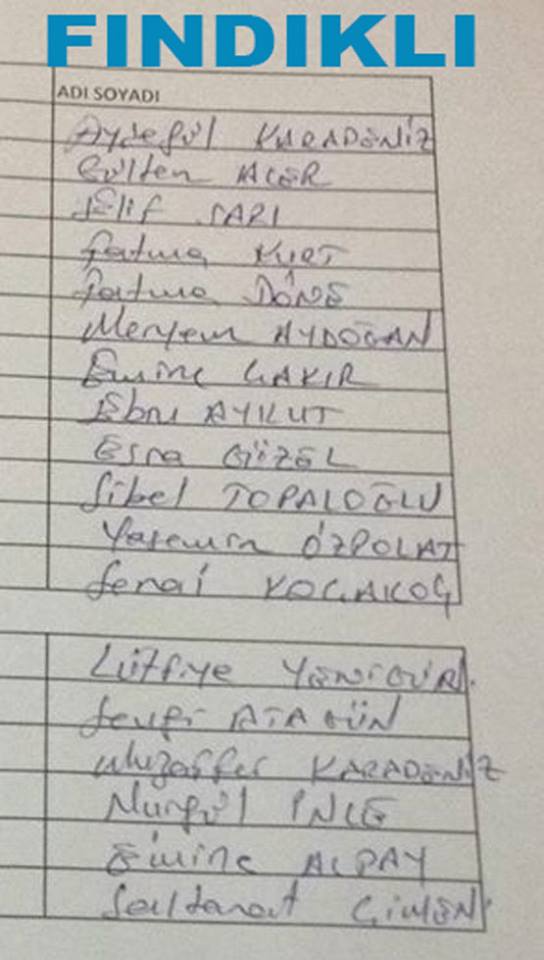 FINDIKLI
ADI SOYADI
Aysegül KARADENİZ
Gülten ACER
Elif SARI
fatma KURT
fatma DÖNE
Meryem AYDOĞAN
Emine ÇAKIR
Ebru AYKUT
Esra GÜZEL
Sibel TOPALOĞLU
Yasemin ÖZPOLAT
Senai KOÇAKOÇ
Lütfiye
Sevgi ATAGÜN
Muzaffer KARADENİZ
Nurgül İNCE
Emine ALPAY
Saltanat ÇİMEN